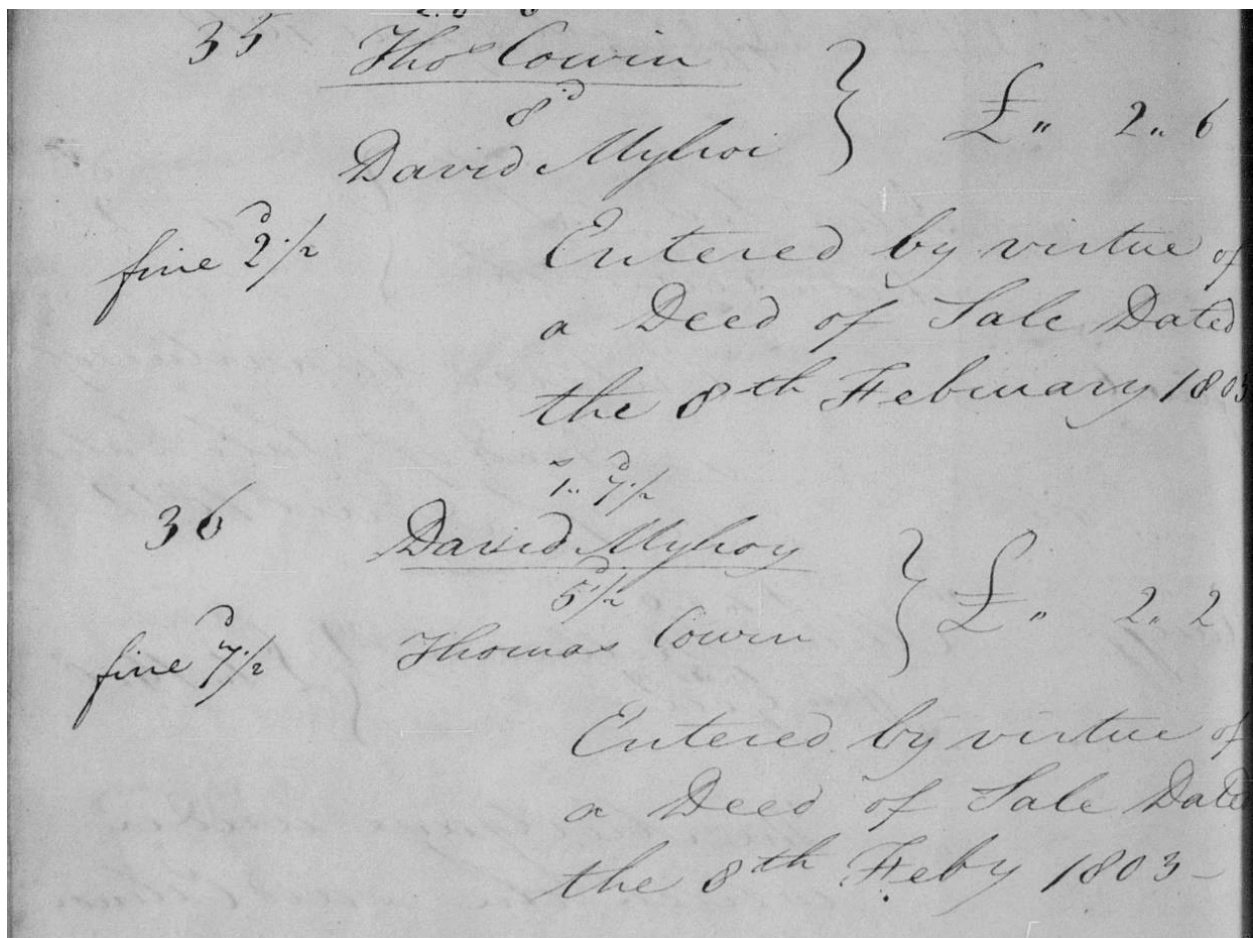 35 Thos Cowin
8d
David Mylroi } £ " 2 " 6
fine 2d 1/2
Entered by virtue of
a Deed of Sale Dated
the 8th February 1803
1s " 7d 1/2
36 David Mylroy
5d 1/2
Thomas Cowin } £ " 2 " 2
fine 7d 1/2
Entered by virtue of
a Deed of Sale Dated
the 8th Feby 1803 -